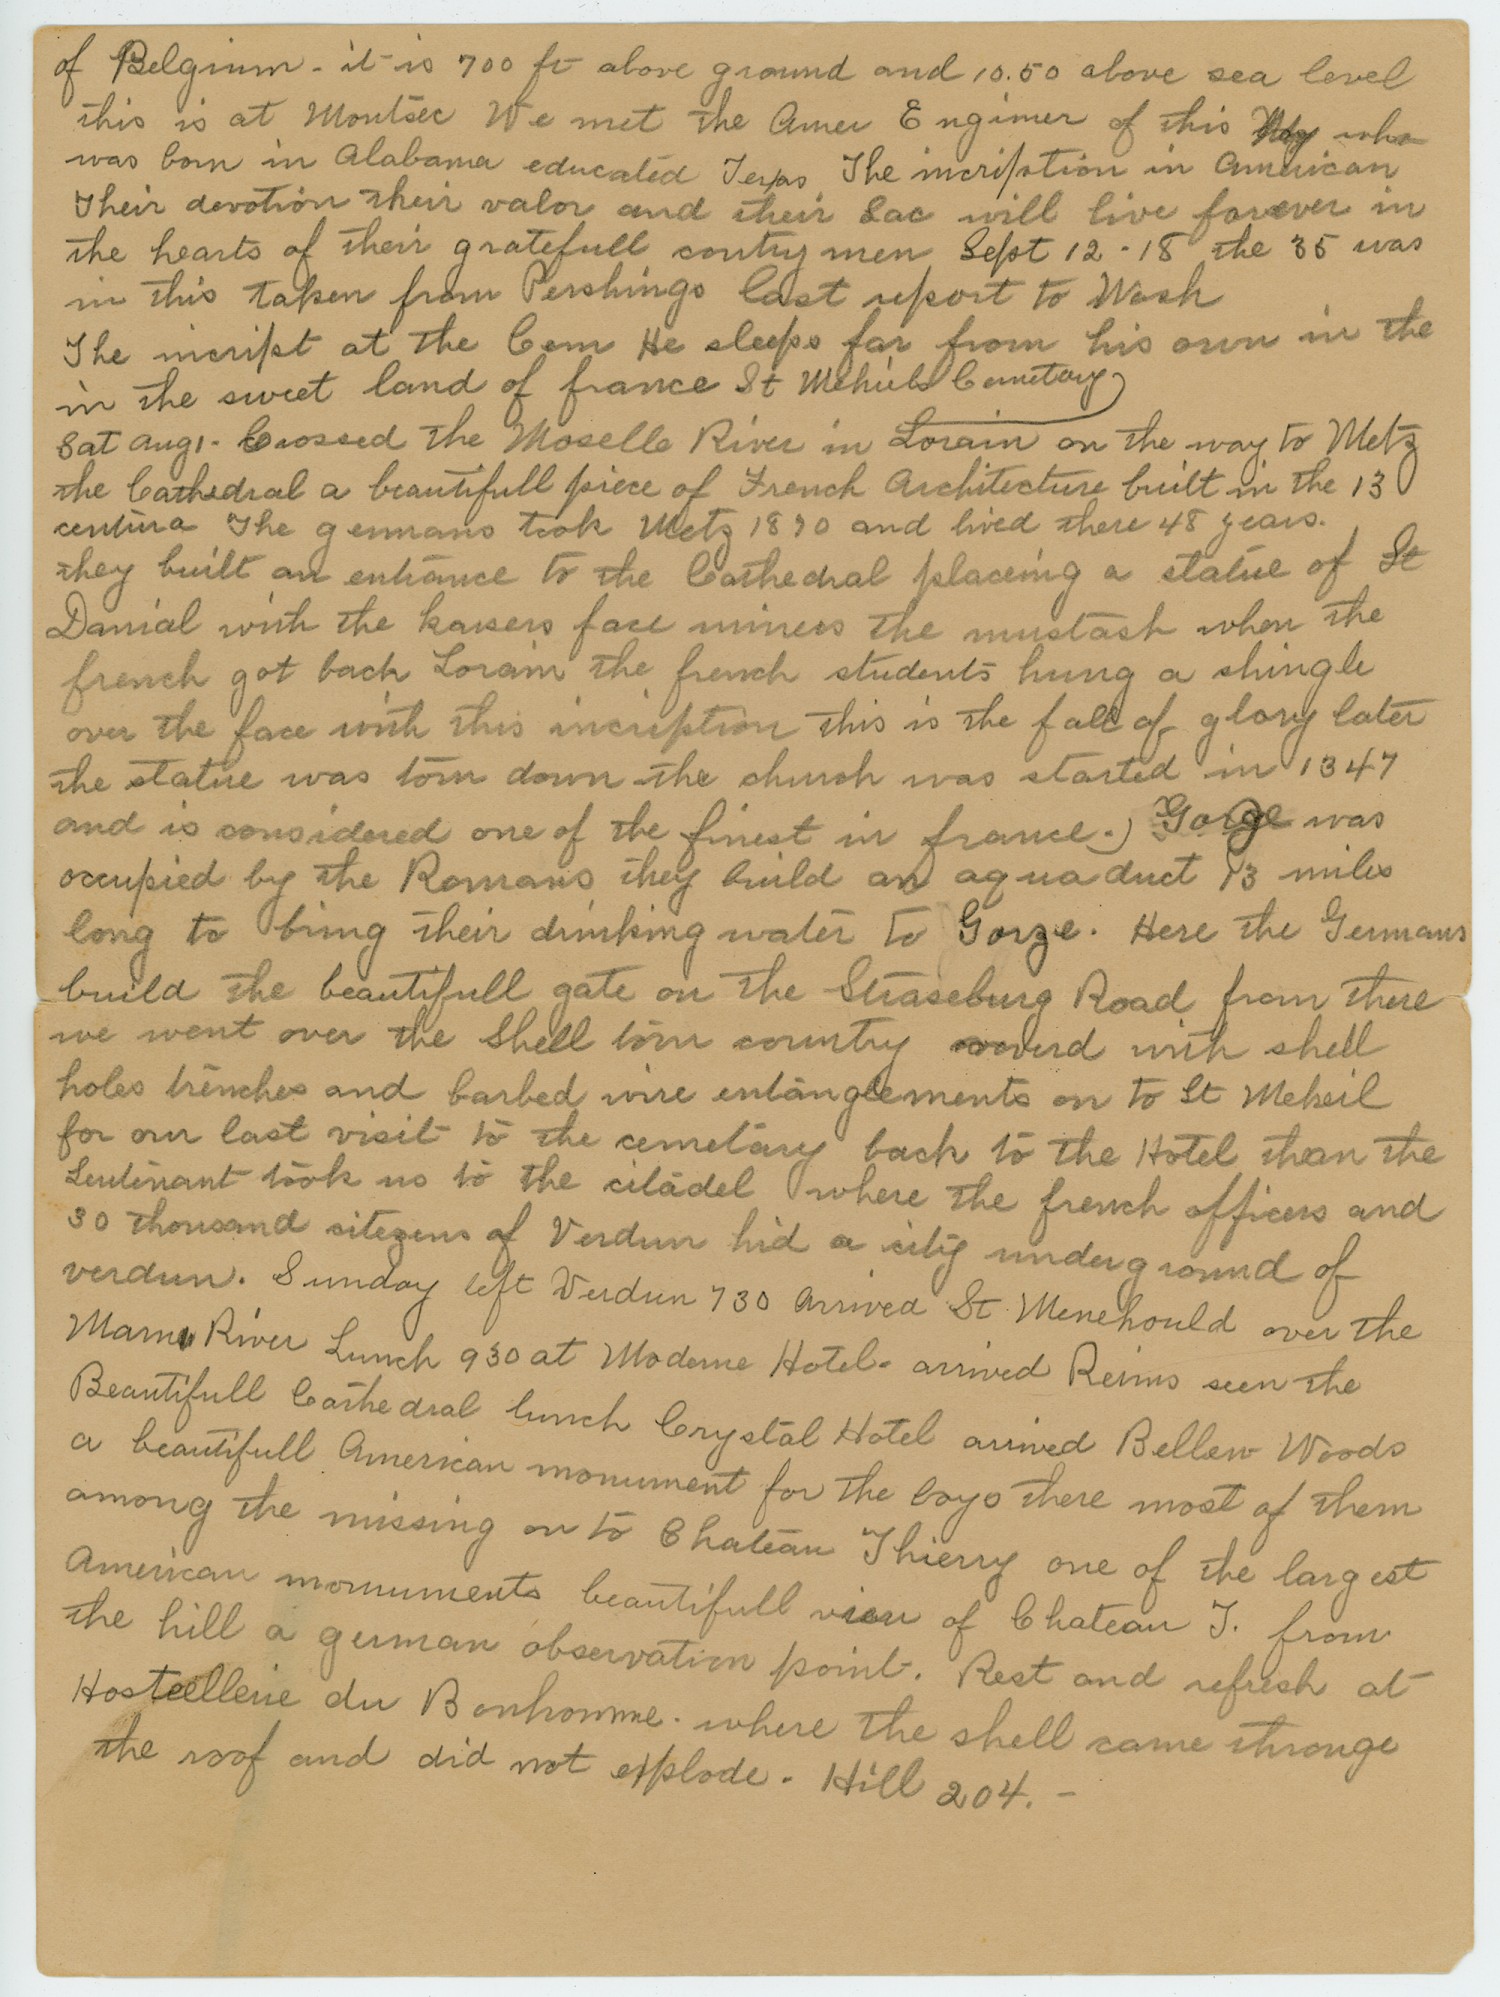 of Belgium - it is 700 ft above ground and 10.50 above sea level
this is at Montsec We met the Amer Enginer of this who
was born in Alabama educated Texas The incription in American
Their devotion their valor and their Sac will live forever in
the hearts of their gratefull contrymen Sept 12 - 18 the 35 was
in this taken from Pershings last report to Wash
The incript at the Cem He sleeps far from his own in the
in the sweet land of france St Mehiels Cemetary)
Sat Aug 1 - Crossed the Moselle River in Lorain on the way to Metz
the Cathedral a beautifull piece of French Architecture built in the 13
centura The germans took Metz 1870 and lived there 48 years.
they built an entrance to the Cathedral placeing a statue of St
Danial with the kaisers face miness the mustash when the
french got back Lorain the french students hung a shingle
over the face with this incription this is the fall of glory later
the statue was torn down the church was started in 1347
and is considered one of the finest in france.) Gorze was
occupied by the Romans they build an aquaduct 13 miles
long to bring their drinking water to Gorze. Here the Germans
build the beautifull gate on the Straseburg Road from there
we went over the Shell torn country coverd with shell
holes trenches and barbed wire entanglements on to St Meheil
for our last visit to the cemetary back to the Hotel than the
Leutenant took us to the citadel where the french officers and
30 thousand citezens of Verdun hid a city underground of
verdun. Sunday left Verdun 730 Arrived St Menehould over the
Marne River Lunch 930 at Moderne Hotel - arrived Reims seen the
Beautifull Cathedral lunch Crystal Hotel arrived Bellew Woods
a beautifull American monument for the boys there most of them
among the missing on to Chateau Thierry one of the largest
American monuments beautifull view of Chateau T. from
the hill a german observation point. Rest and refresh at
Hostellerie du Bonhomme - where the shell came througe
the roof and did not explode. Hill 204. -